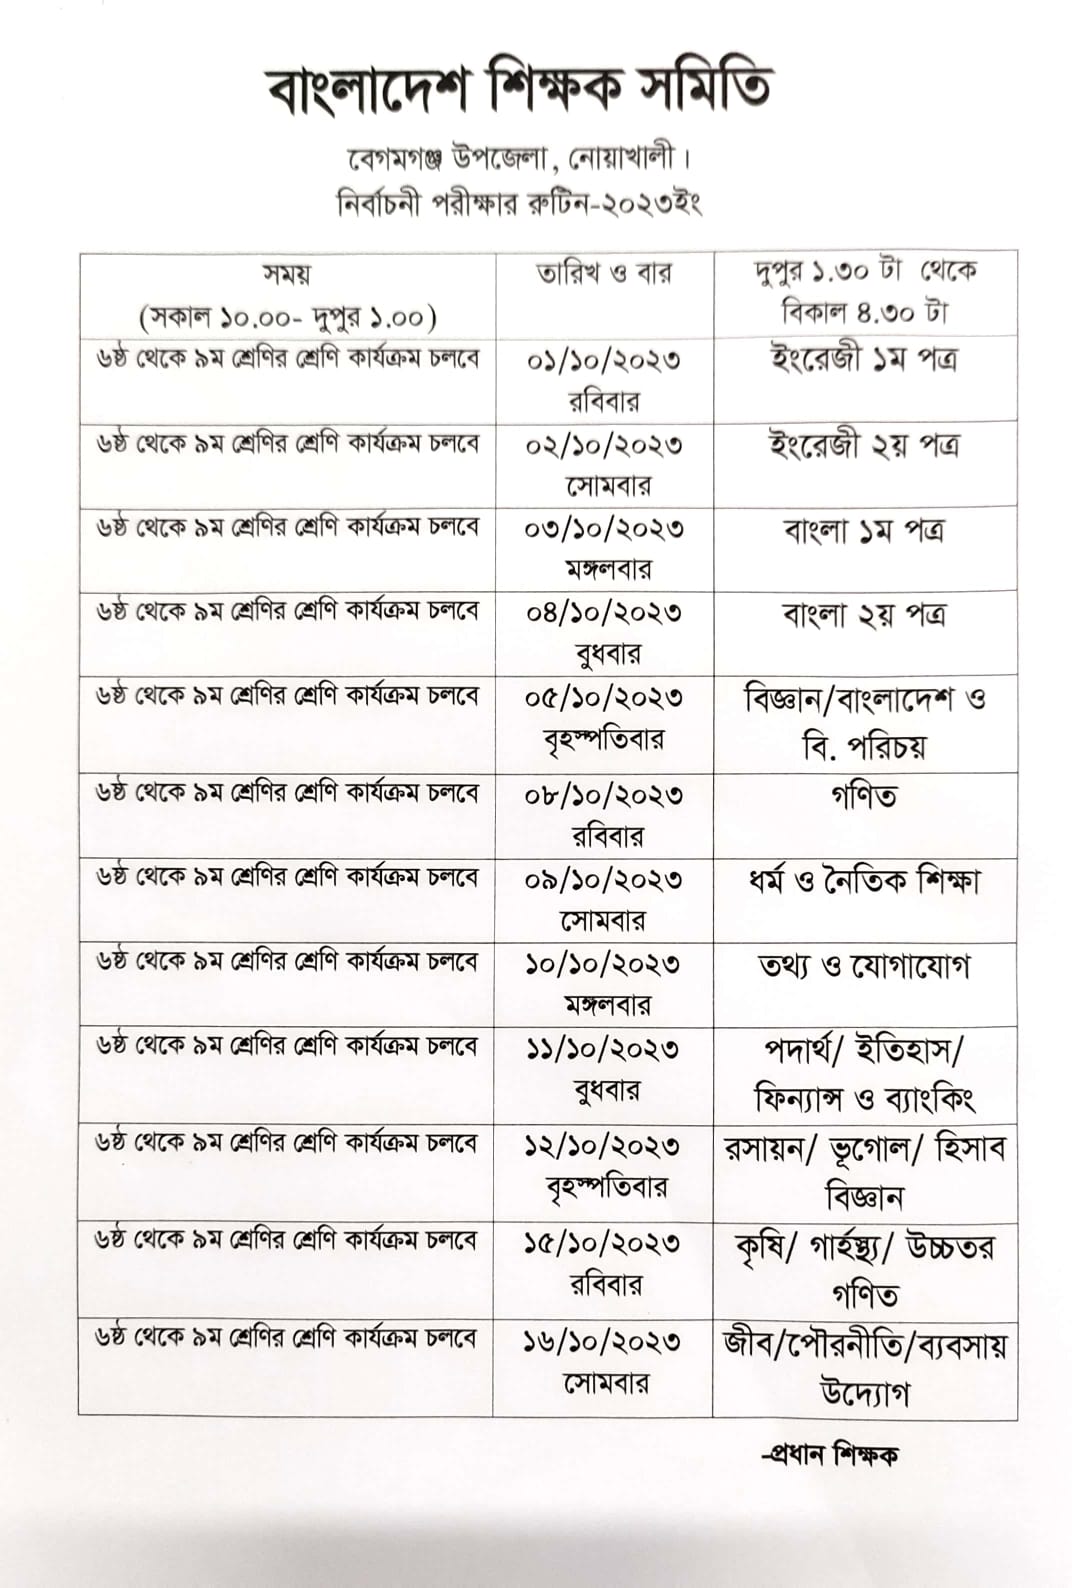 বাংলাদেশ শিক্ষক সমিতি
বেগমগঞ্জ উপজেলা, নোয়াখালী।
নির্বাচনী পরীক্ষার রুটিন-২০২৩ইং
সময় তারিখ ও বার দুপুর ১.৩০ টা থেকে
(সকাল ১০.০০- দুপুর ১.০০) বিকাল ৪.৩০ টা
৬ষ্ঠ থেকে ৯ম শ্রেণির শ্রেণি কার্যক্রম চলবে ০১/১০/২০২৩ ইংরেজী ১ম পত্র
রবিবার
৬ষ্ঠ থেকে ৯ম শ্রেণির শ্রেণি কার্যক্রম চলবে ০২/১০/২০২৩ ইংরেজী ২য় পত্র
সোমবার
৬ষ্ঠ থেকে ৯ম শ্রেণির শ্রেণি কার্যক্রম চলবে ০৩/১০/২০২৩ বাংলা ১ম পত্র
মঙ্গলবার
৬ষ্ঠ থেকে ৯ম শ্রেণির শ্রেণি কার্যক্রম চলবে ০৪/১০/২০২৩ বাংলা ২য় পত্র
বুধবার
৬ষ্ঠ থেকে ৯ম শ্রেণির শ্রেণি কার্যক্রম চলবে ০৫/১০/২০২৩ বিজ্ঞান/বাংলাদেশ ও
বৃহস্পতিবার বি. পরিচয়
৬ষ্ঠ থেকে ৯ম শ্রেণির শ্রেণি কার্যক্রম চলবে ০৮/১০/২০২৩ গণিত
রবিবার
৬ষ্ঠ থেকে ৯ম শ্রেণির শ্রেণি কার্যক্রম চলবে ০৯/১০/২০২৩ ধর্ম ও নৈতিক শিক্ষা
সোমবার
৬ষ্ঠ থেকে ৯ম শ্রেণির শ্রেণি কার্যক্রম চলবে ১০/১০/২০২৩ তথ্য ও যোগাযোগ
মঙ্গলবার
৬ষ্ঠ থেকে ৯ম শ্রেণির শ্রেণি কার্যক্রম চলবে ১১/১০/২০২৩ পদার্থ/ ইতিহাস/
বুধবার ফিন্যান্স ও ব্যাংকিং
৬ষ্ঠ থেকে ৯ম শ্রেণির শ্রেণি কার্যক্রম চলবে ১২/১০/২০২৩ রসায়ন/ ভূগোল/ হিসাব
বৃহস্পতিবার বিজ্ঞান
৬ষ্ঠ থেকে ৯ম শ্রেণির শ্রেণি কার্যক্রম চলবে ১৫/১০/২০২৩ কৃষি/ গার্হস্থ্য/ উচ্চতর
রবিবার গণিত
৬ষ্ঠ থেকে ৯ম শ্রেণির শ্রেণি কার্যক্রম চলবে ১৬/১০/২০২৩ জীব/পৌরনীতি/ব্যবসায়
সোমবার উদ্যোগ
-প্রধান শিক্ষক